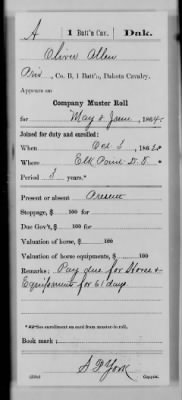 A | 1 Batt'n Cav. | Dak.
Oliver Allen
Priv, Co. B, 1 Batt'n, Dakota Cavalry.
Appears on
Company Muster Roll
for May & June, 1864.
Joined for duty and enrolled:
When Dec 3, 1862
Where Elk Point D.T.
Period 3 years.*
Present or absent Present
Stoppage, $ 100 for
Due Gov't, $ 100 for
Valuation of horse, $ 100
Valuation of horse equipments, $ 100
Remarks: Pay due for Horse &
Equipments for 61 days
*See enrollment on card from muster-in roll.
Book mark:
S P York
Copyist.